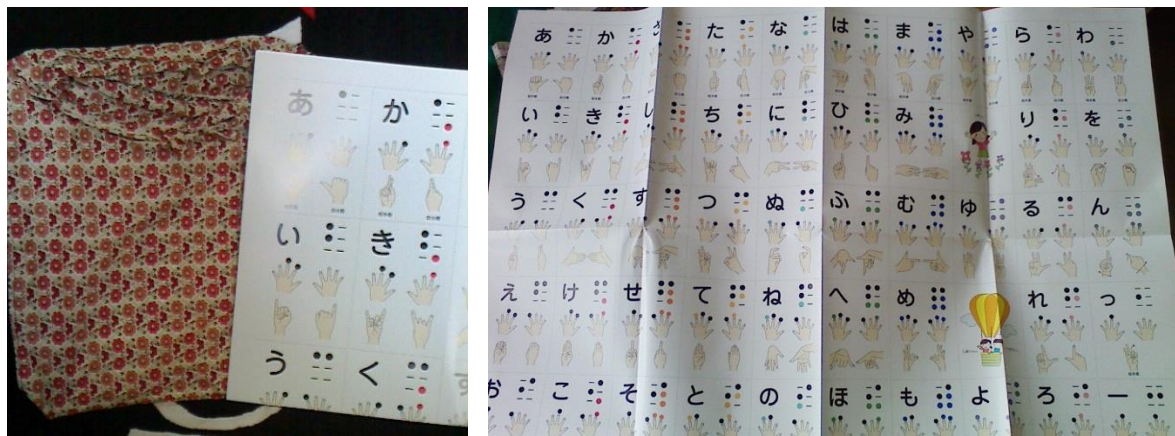 あ か
い き
う く す
あ か さ た な は ま や ら わ
い き し ち に ひ み り を
う く す つ ぬ ふ む ゆ る ん
え け せ て ね へ め れ っ
お こ そ と の ほ も よ ろ ー